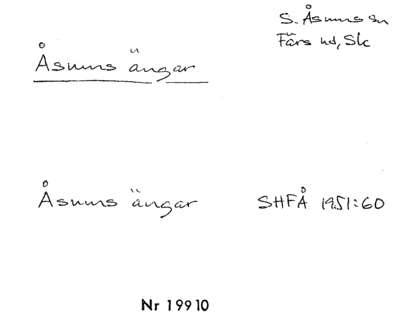 S. Åsums sn
Färs hd, Sk
Åsums ängar
Åsums ängar SHFÅ 1951:60
Nr 19910